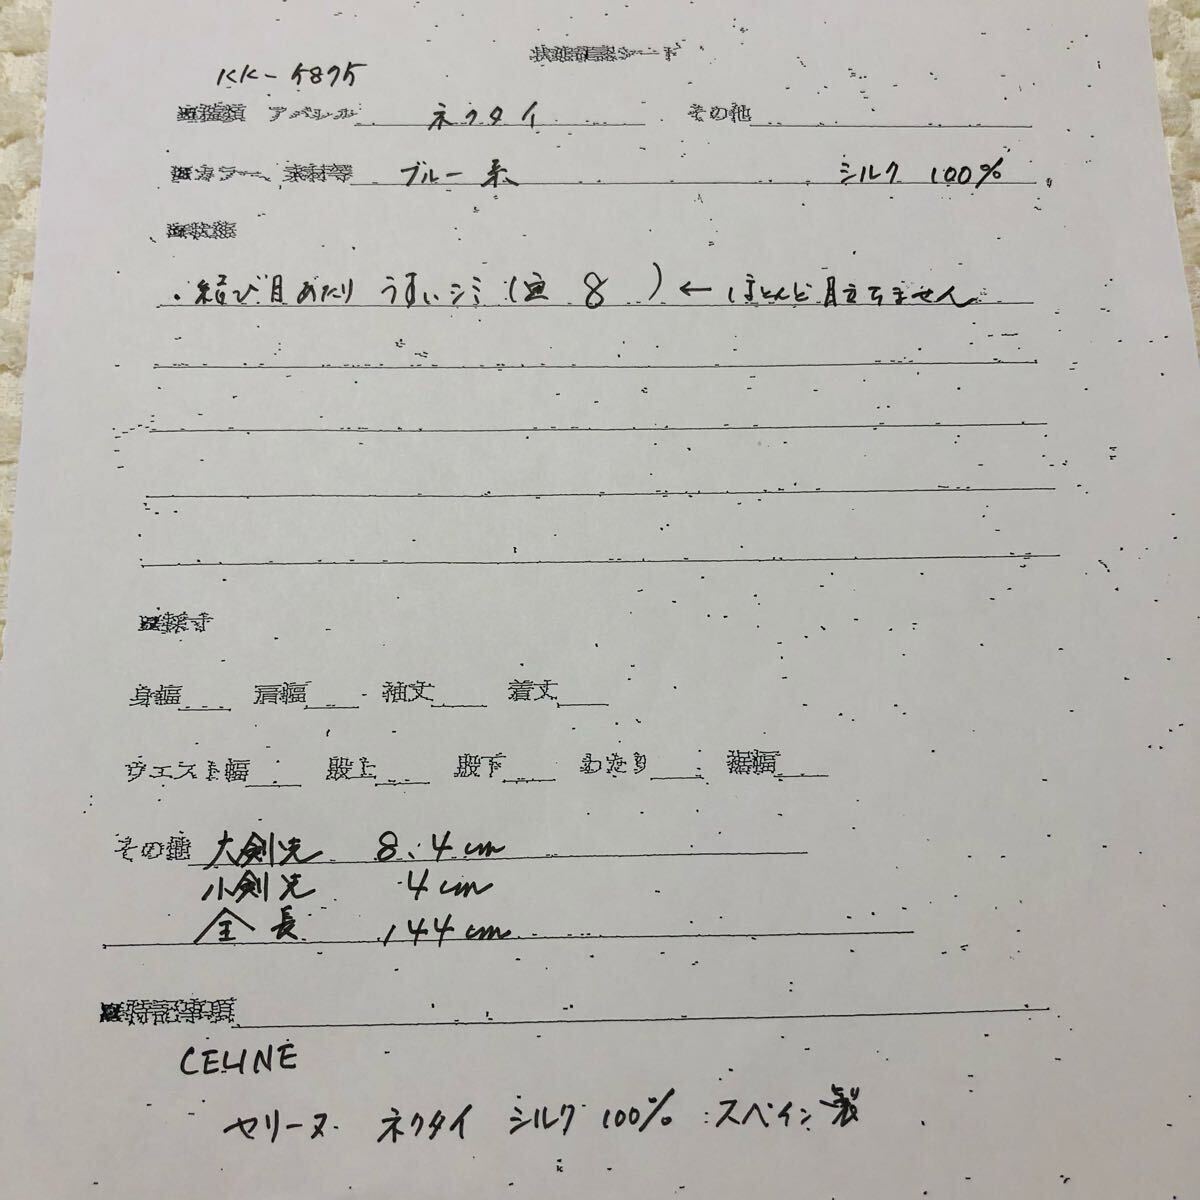 状態確認シート
KK-5875
■種類 アパレル ネクタイ その他
■カラー、素材等 ブルー系 シルク 100%
■状態
・結び目あたり うすいシミ(画 8 )← ほとんど目立ちません
■採寸
身幅 肩幅 袖丈 着丈
ウエスト幅 股上 股下 わたり 裾幅
その他 大剣先 8.4cm
小剣先 4cm
全長 144cm
■特記事項
CELINE
セリーヌ ネクタイ シルク 100% スペイン製